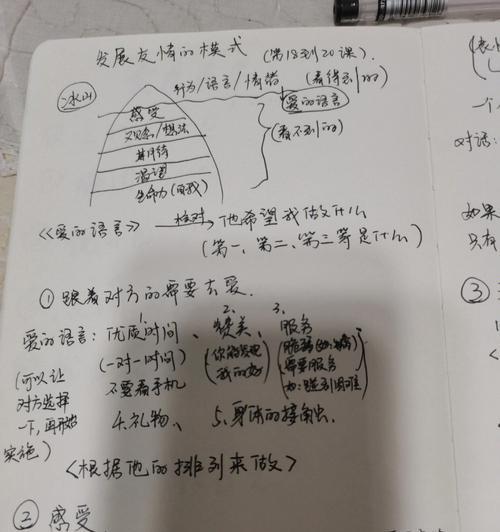 发展友情的模式 (第18到20课).
冰山
行为/语言/情绪 (看得到的)
爱的语言
感受
观念/想法
(看不到的)
期待
渴望
生命力(自我)
《爱的语言》 核对 他希望我做什么
(第一、第二、第三等是什么)
① 跟着对方的需要去爱.
爱的语言: 1. 优质时间、 2. 赞美、 3. 服务
(一对一时间) (你能发现
不要看手机 我的好)
需要服务
如: 遇到困难
(可以让
对方选择
一下, 再开始
实施)
4. 礼物、 5. 身体的接触.
<根据他的排列来做>
② 感受
一个
对话:
如果
只有
③